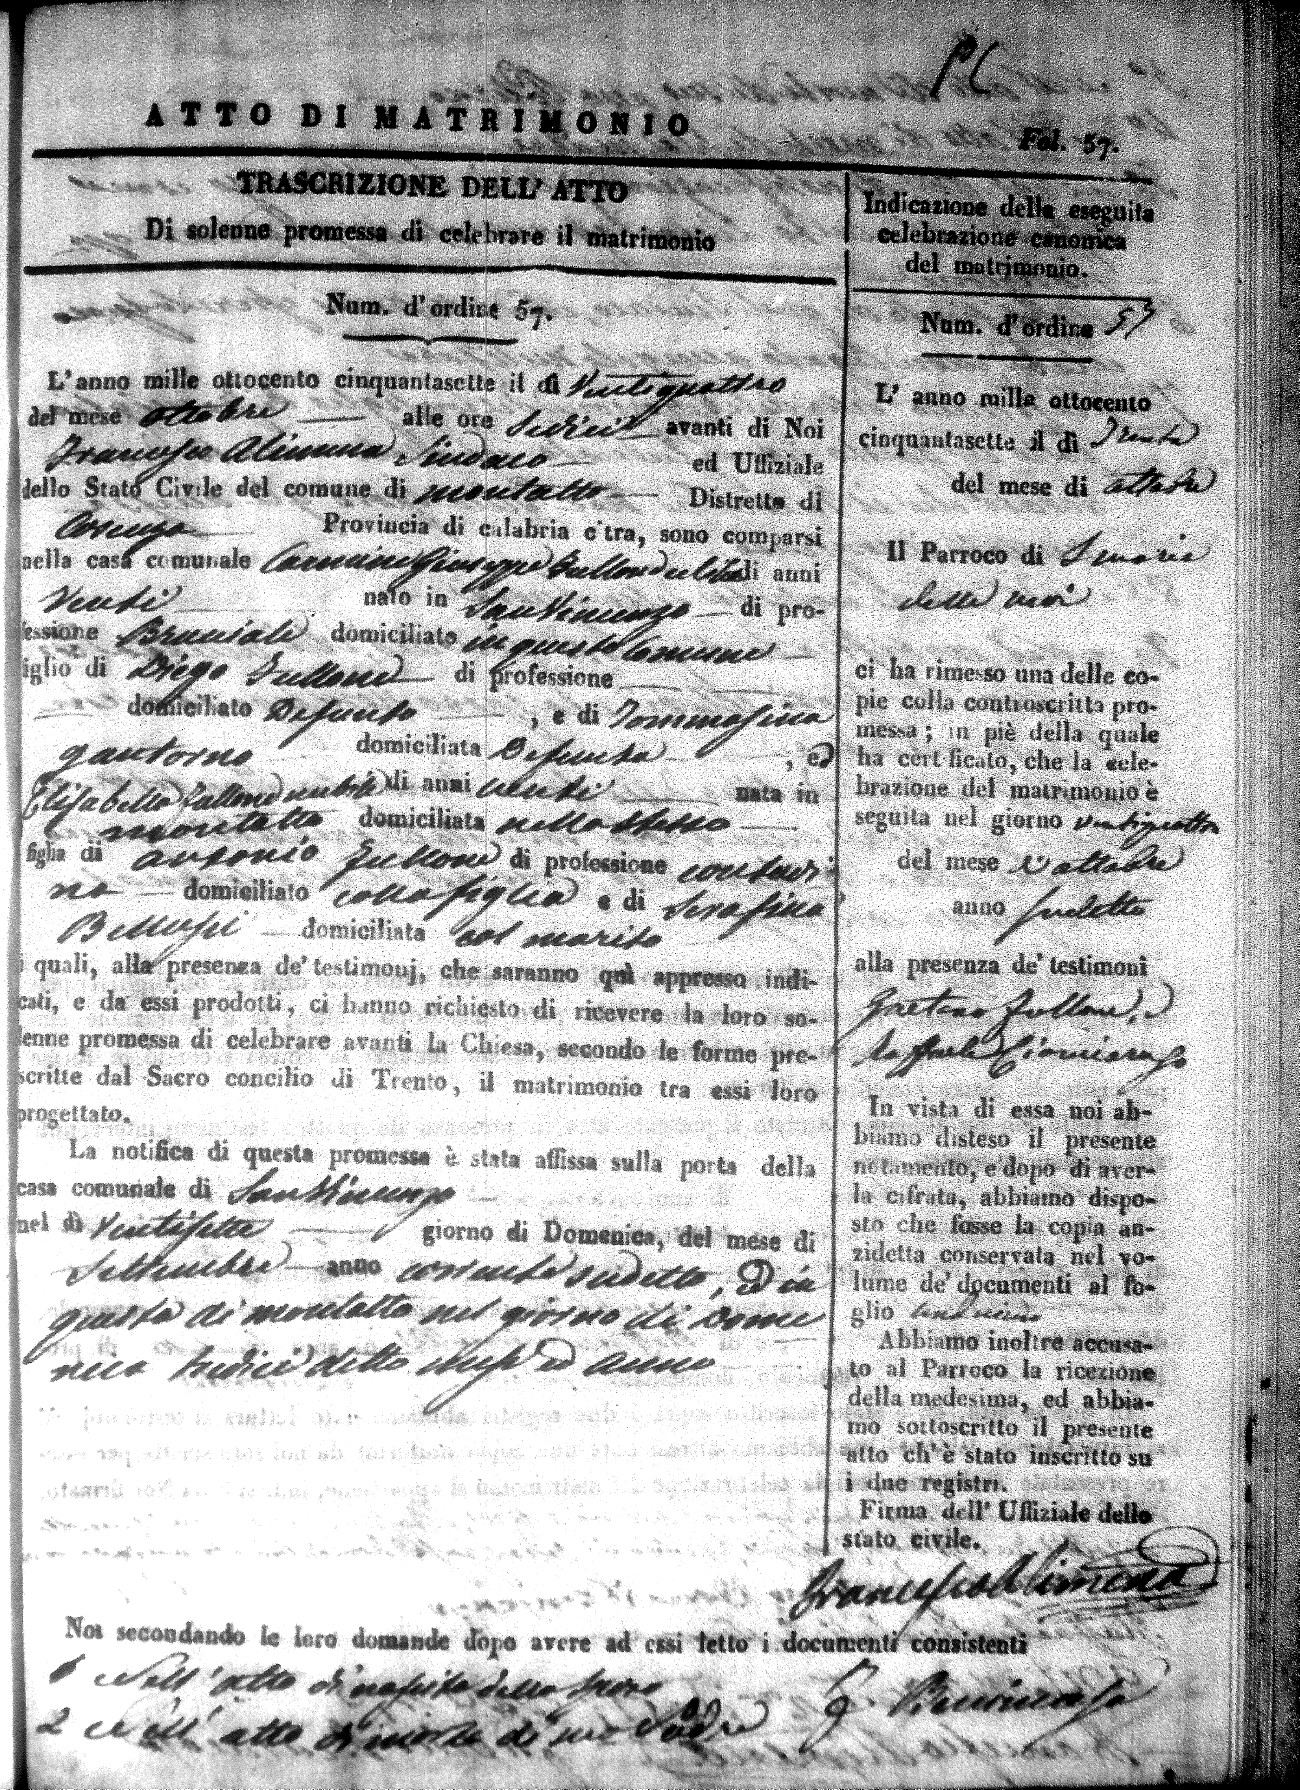 ATTO DI MATRIMONIO
Fol. 57.
TRASCRIZIONE DELL' ATTO
Di solenne promessa di celebrare il matrimonio
Num. d'ordine 57.
L'anno mille ottocento cinquantasette il dì Ventiquattro
del mese ottobre alle ore Sedici avanti di Noi
Francesco Alimena Sindaco ed Uffiziale
dello Stato Civile del comune di Montalto Distretto di
Cosenza Provincia di calabria citra, sono comparsi
nella casa comunale Carmine Giuseppe Fullone di anni
Venti nato in San Vincenzo di pro-
fessione Bracciale domiciliato in questo Comune
figlio di Diego Fullone di professione
domiciliato Defunto , e di Tommasina
domiciliata Defunta , ed
Elisabetta Fullone nubile di anni venti nata in
Montalto domiciliata nello stesso
figlia di Antonio Fullone di professione contadi
no domiciliato colla figlia e di Serafina
domiciliata col marito
i quali, alla presenza de' testimonj, che saranno quì appresso indi-
cati, e da essi prodotti, ci hanno richiesto di ricevere la loro so-
lenne promessa di celebrare avanti la Chiesa, secondo le forme pre-
scritte dal Sacro concilio di Trento, il matrimonio tra essi loro
progettato.
La notifica di questa promessa è stata affissa sulla porta della
casa comunale di San Vincenzo
nel dì Ventisette giorno di Domenica, del mese di
Settembre anno corrente sudetto, Ed in
questa di Montalto nel giorno di Dome
nica detto mese ed anno
Indicazione della eseguita
celebrazione canonica
del matrimonio.
Num. d'ordine 57
L' anno mille ottocento
cinquantasette il dì Trenta
del mese di ottobre
Il Parroco di S Maria
della
ci ha rimesso una delle co-
pie colla controscritta pro-
messa; in piè della quale
ha certificato, che la cele-
brazione del matrimonio è
seguita nel giorno ventiquattro
del mese d'ottobre
anno sudetto
alla presenza de' testimoni
Gaetano Fullone, e
Raffaele
In vista di essa noi ab-
biamo disteso il presente
notamento, e dopo di aver-
la cifrata, abbiamo dispo-
sto che fosse la copia an-
zidetta conservata nel vo-
lume de' documenti al fo-
glio
Abbiamo inoltre accusa-
to al Parroco la ricezione
della medesima, ed abbia-
mo sottoscritto il presente
atto ch'è stato inscritto su
i due registri.
Firma dell' Uffiziale dello
stato civile.
Francesco Alimena
Noi secondando le loro domande dopo avere ad essi letto i documenti consistenti
1 Nell' atto di nascita dello sposo
2 Nell' atto di morte di suo Padre